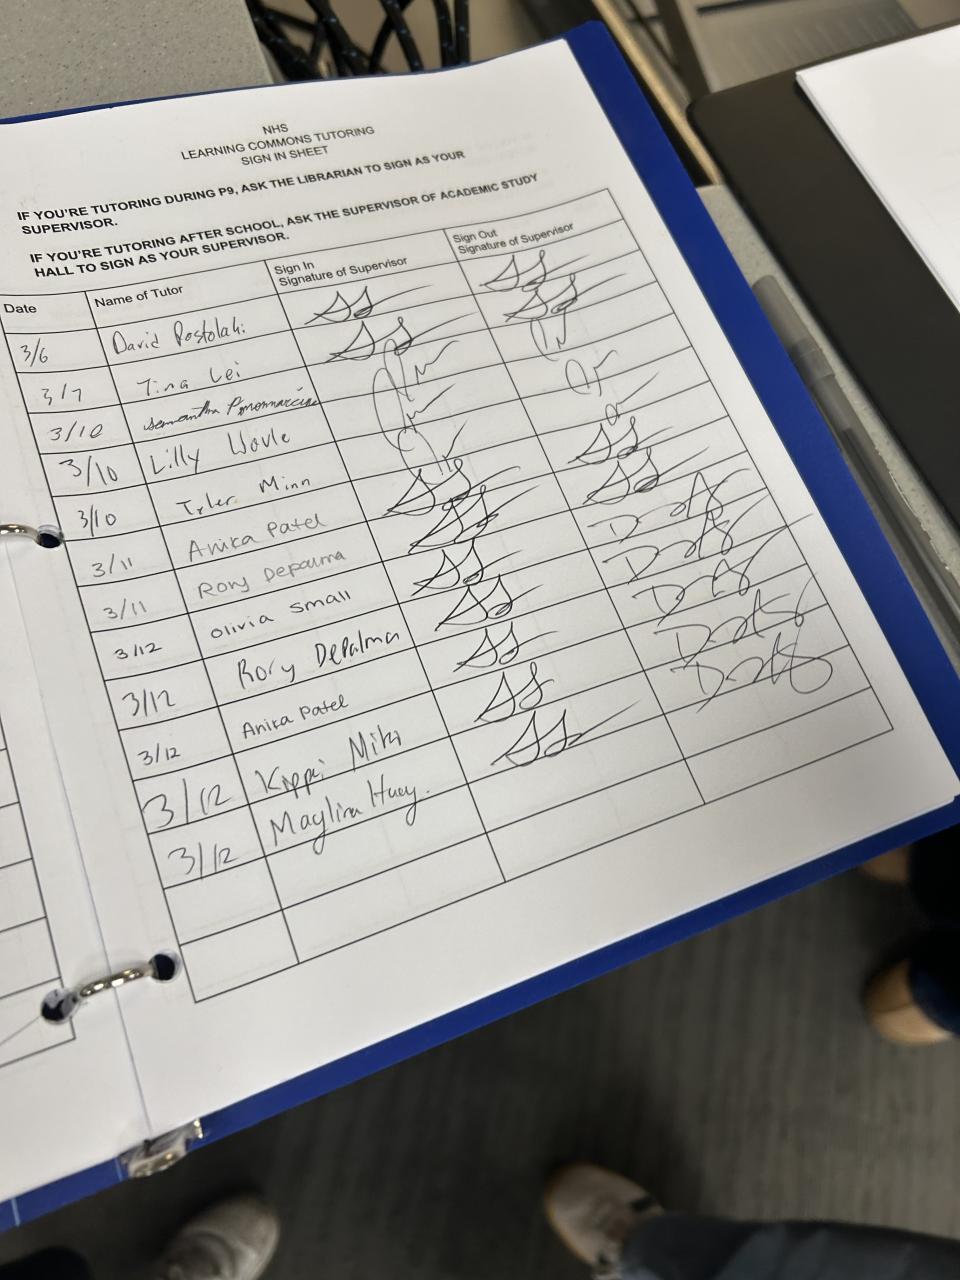 NHS
LEARNING COMMONS TUTORING
SIGN IN SHEET
IF YOU'RE TUTORING DURING P9, ASK THE LIBRARIAN TO SIGN AS YOUR
SUPERVISOR.
IF YOU'RE TUTORING AFTER SCHOOL, ASK THE SUPERVISOR OF ACADEMIC STUDY
HALL TO SIGN AS YOUR SUPERVISOR.
Date Name of Tutor Sign In Signature of Supervisor Sign Out Signature of Supervisor
3/6 David Postolaki
3/7 Tina Lei
3/10 Samantha
3/10 Lilly
3/10 Tyler Minn
3/11 Anika Patel
3/11 Rory Depalma
3/12 Olivia Small
3/12 Rory DePalma
3/12 Anika Patel
3/12 Kippei
3/12